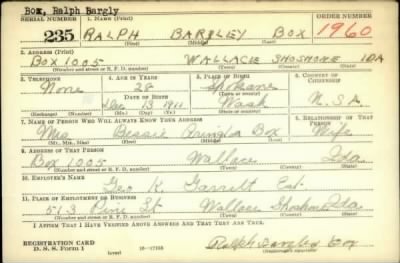 Box, Ralph Bargly
SERIAL NUMBER 1. NAME (Print) ORDER NUMBER
235 RALPH BARGLEY BOX 1960
(First) (Middle) (Last)
2. ADDRESS (Print)
BOX 1005 WALLACE SHOSHONE IDA
(Number and street or R. F. D. number) (Town) (County) (State)
3. TELEPHONE 4. AGE IN YEARS 5. PLACE OF BIRTH 6. COUNTRY OF CITIZENSHIP
None 28 Spokane
DATE OF BIRTH (Town or county)
Dec 13 1911 Wash U.S.A.
(Exchange) (Number) (Mo.) (Day) (Yr.) (State or country)
7. NAME OF PERSON WHO WILL ALWAYS KNOW YOUR ADDRESS 8. RELATIONSHIP OF THAT PERSON
Mrs Bessie Box Wife
(Mr., Mrs., Miss) (First) (Middle) (Last)
9. ADDRESS OF THAT PERSON
Box 1005 Wallace Ida.
(Number and street or R. F. D. number) (Town) (County) (State)
10. EMPLOYER'S NAME
Geo K. Garrett
11. PLACE OF EMPLOYMENT OR BUSINESS
513 Pine St Wallace Shoshone Ida.
(Number and street or R. F. D. number) (Town) (County) (State)
I AFFIRM THAT I HAVE VERIFIED ABOVE ANSWERS AND THAT THEY ARE TRUE.
REGISTRATION CARD
D. S. S. Form 1 (over) 16-17105 Ralph Bargley Box
(Registrant's signature)